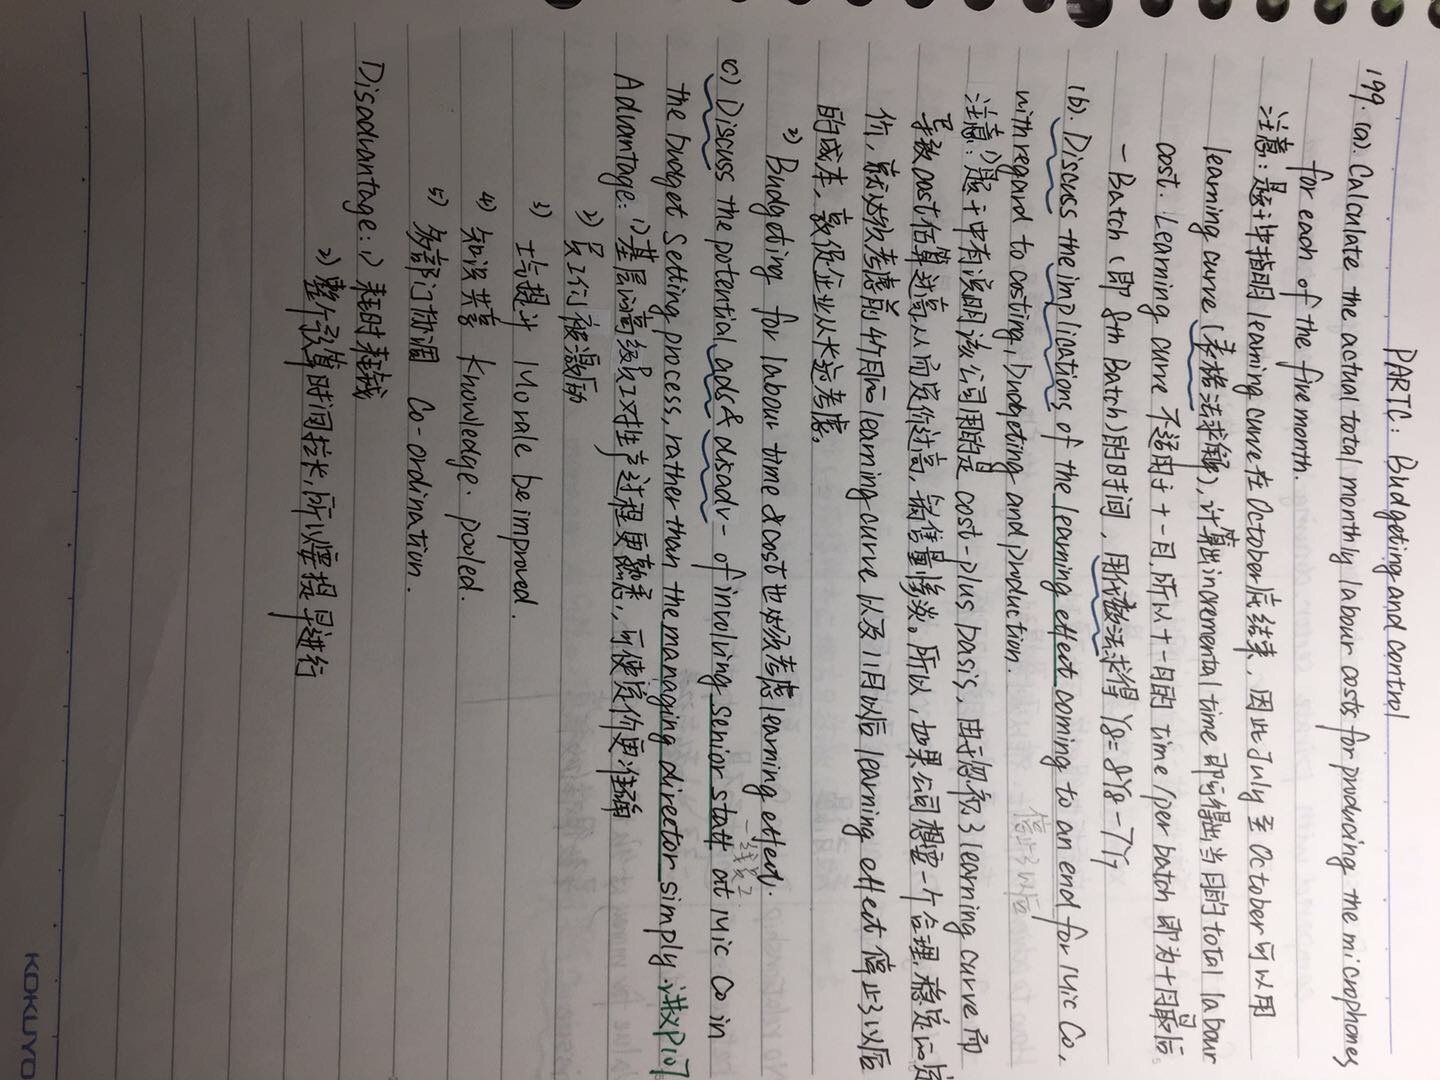 PARTC: Budgeting and control
199. (a). Calculate the actual total monthly labour costs for producing the microphones
for each of the five month.
注意: 题计中指明 learning curve 在 October 后结束, 因此 July 至 October 可以用
learning curve (表格法求解), 计算出 incremental time 即可得出当月的 total labour
cost. Learning curve 不适用于十一月, 所以十一月的 time/per batch 即为十月最后
一 Batch (即 8th Batch) 的时间, 用代数法求得 y8 = 8Y8 - 7Y7
(b). Discuss the implications of the learning effect coming to an end for Mic Co,
停止了以后
with regard to costing, budgeting and production.
注意: 1) 题干中有说明该公司用的是 cost-plus basis, 由于忽视了 learning curve 而
导致 cost 估算过高从而定价过高, 销售量惨淡。所以, 如果公司想要一个合理稳定的定
价, 就必须考虑前4个月的 learning curve 以及 11月以后 learning effect 停止了以后
的成本, 敦促企业从长远考虑。
2) Budgeting for labour time & cost 也必须考虑 learning effect.
一线员工
c) Discuss the potential ads & disadv- of involving senior staff at Mic Co in
the budget setting process, rather than the managing director simply 讲义P107
Advantage: 1) 基层的高级员工对生产过程更熟悉, 可使定价更准确
2) 员工们被激励
3) 士气提升 Morale be improved.
4) 知识共享 knowledge. pooled.
5) 多部门协调 Co-ordination.
Disadvantage: 1) 耗时耗钱
2) 整个预算时间拉长, 所以要提早进行
KOKUYO